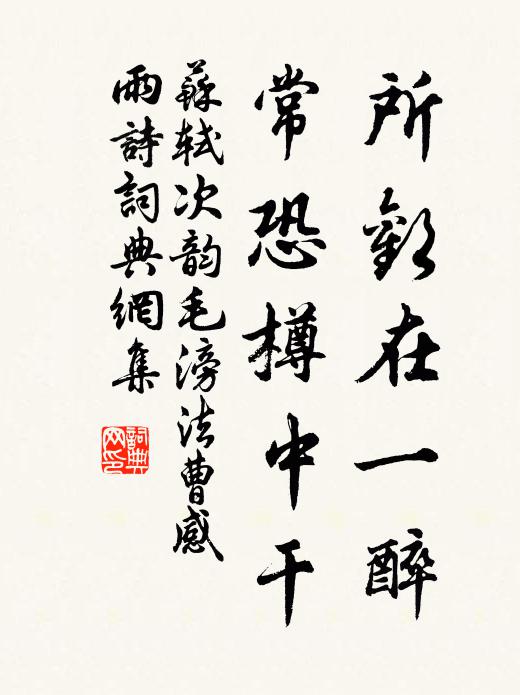 所歡在一醉
常恐樽中干
蘇軾次韵毛滂法曹感
雨詩詞典網集
詞典
网印